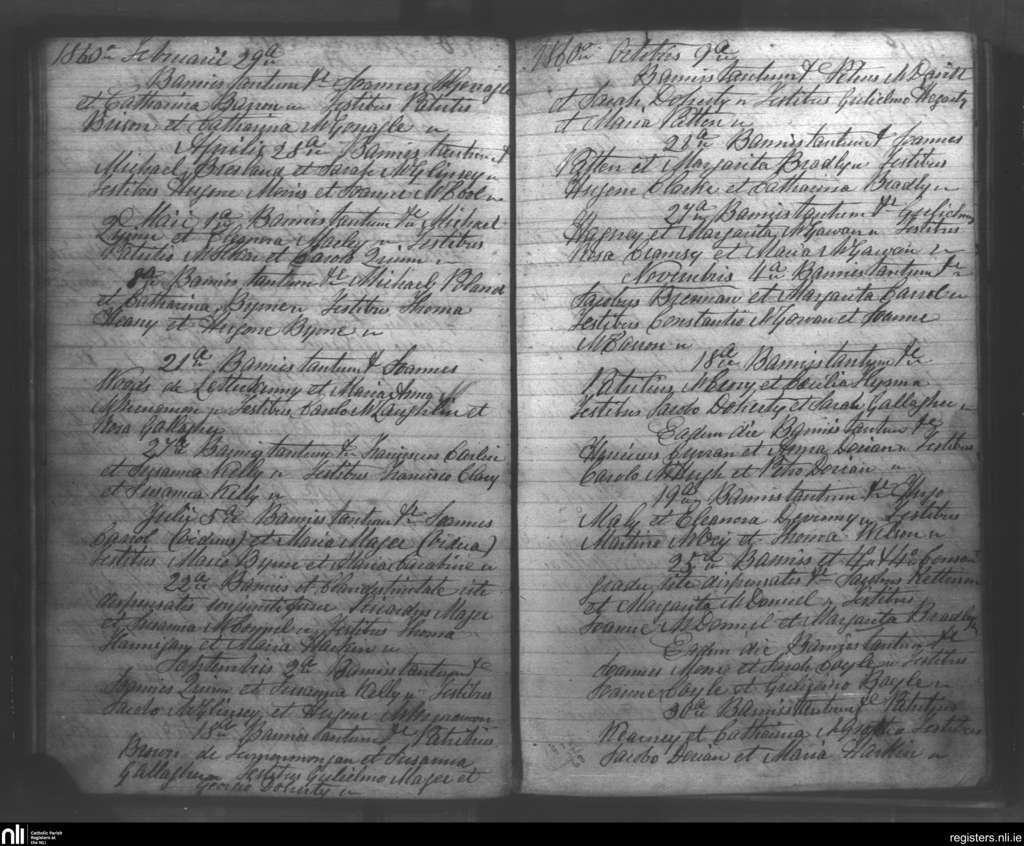 1860 Februarii 29a
Bannis tantum &c Joannes McGonagle
et Catharina Byron Testibus Patritio
Bryson et Catharina McGonagle
Aprilis 28a Bannis tantum &
Michael Bresland et Sarah McGlynsey
Testibus Eugene et Joanne McCool
Maii 1a Bannis tantum &c Michael
Quinn et Eleonora Testibus
Patritio et Carolo Quinn
8a Bannis tantum &c Michael Boland
et Catharina Byrne Testibus Thoma
Heany et Eugene Byrne
21a Bannis tantum & Joannes
Woods de Letterkenny et Maria Anna
Testibus Carolo McLaughlin et
Rosa Gallagher
27a Bannis tantum & Franciscus Carlin
et Susanna Kelly Testibus Francisco Clary
et Susanna Kelly
Julii 5a Bannis tantum & Joannes
Carrol (viduus) et Maria Mager (vidua)
Testibus Byrne et Maria
22a Bannis et Clandestinitate rite
dispensatis conjuncti fuere Mager
et Susanna McConnel Testibus Thoma
Hannigan et Maria Harkin
Septembris 2a Bannis tantum &c
Joannes Quinn et Susanna Kelly Testibus
Jacobo McGlinsey et Eugene
18a Bannis tantum & Patritius
de et Susanna
Gallagher Testibus Gulielmo Mager et
Doherty
1860 Octobris 9a
Bannis tantum & Petrus McDavitt
et Sarah Doherty Testibus Gulielmo Hegarty
et Maria Patton
21a Bannis tantum & Joannes
Patton et Margarita Bradly Testibus
Eugene Clarke et Catharina Bradly
27a Bannis tantum & Gulielmus
et Margarita McGowan Testibus
Rosa et Maria McGowan
Novembris 4a Bannis tantum &c
Jacobus Brennan et Margarita Carrol
Testibus Constantio McGowan et Joanne
18a Bannis tantum &c
Patritius et Cecilia
Testibus Jacobo Doherty et Sarah Gallagher
Eadem die Bannis tantum &c
et Anna Dorian Testibus
Carolo McHugh et Petro Dorian
19a Bannis tantum &c Hugo
Maly et Eleanora Devenny Testibus
Martino et Thoma Wilson
25a Bannis et 4o & 4o Consan
gradu rite dispensatis & Jacobus
et Margarita McDonnel Testibus
Joanne McDonnel et Margarita Bradly
Eadem die Bannis tantum &c
Joannes et Sarah Coyle Testibus
Joanne Coyle et Gulielmo Boyle
30a Bannis tantum & Patritius
Kearney et Catharina McGrath Testibus
Jacobo Dorian et Maria Harkin
nli
Catholic Parish
Registers at
the NLI
registers.nli.ie